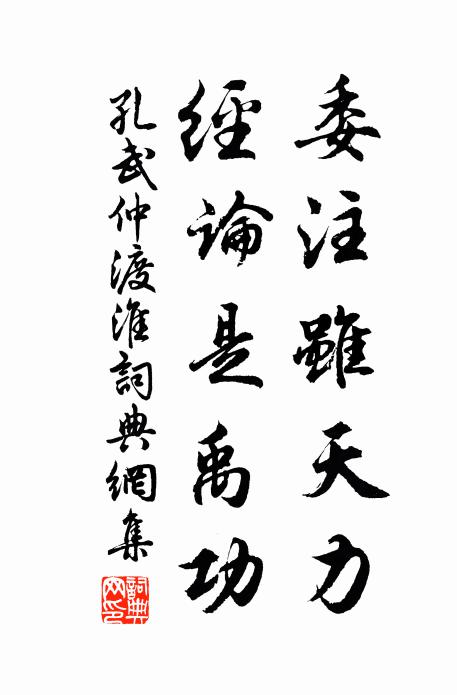 委注雖天力
經論是禹功
孔武仲渡淮詞典網集
詞典網印